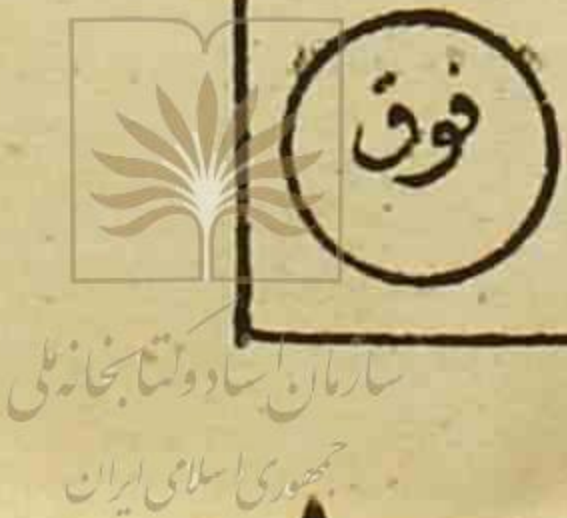 فوق
سازمان اسناد و کتابخانه ملی
جمهوری اسلامی ایران